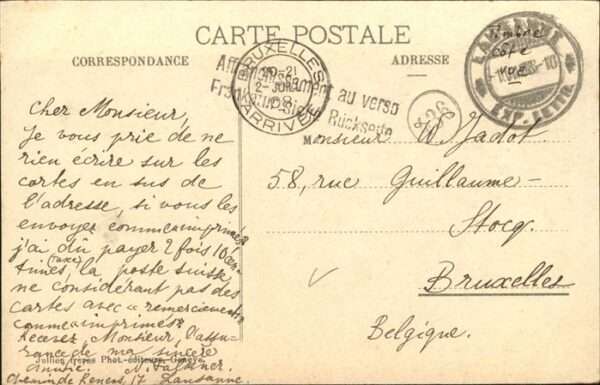 CARTE POSTALE
CORRESPONDANCE
ADRESSE
Timbre
côté
vue
LAUSANNE
EXP. LETTR.
BRUXELLES
ARRIVÉE
Affranchissement au verso
Frankatur siehe Rückseite
826
Cher Monsieur,
Je vous prie de ne
rien écrire sur les
cartes en sus de
l'adresse, si vous les
envoyez comme imprimés
j'ai dû payer 2 fois 10 cen-
times (taxe), la poste suisse
ne considérant pas des
cartes avec « remerciements
comme imprimés »
Recevez, Monsieur, l'assu-
rance de ma sincère
amitié.
Chemin de Renens 17 Lausanne.
Monsieur W. Jadot
58, rue Guillaume-
Stocq.
Bruxelles
Belgique.
Jullien frères Phot.-éditeurs, Genève.